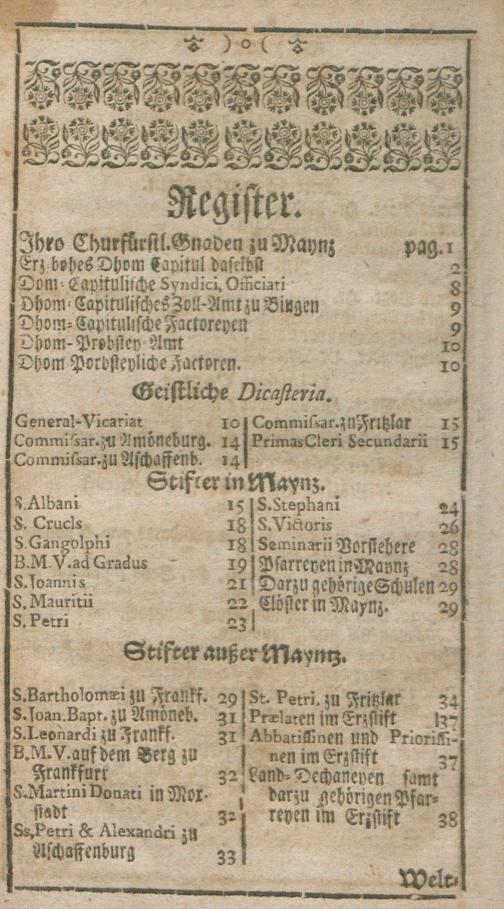 ) o (
Register.
Ihro Churfürstl. Gnaden zu Maynz pag. 1
Erz-hohes Dhom Capitul daselbst 2
Dom-Capitulische Syndici, Officiati 8
Dhom-Capitulisches Zoll-Amt zu Bingen 9
Dhom-Capitulische Factoreyen 9
Dhom-Probstey Amt 10
Dhom Porbsteyliche Factoren. 10
Geistliche Dicasteria.
General-Vicariat 10
Commissar. zu Amöneburg. 14
Commissar. zu Aschaffenb. 14
Commissar. zu Fritzlar 15
Primas Cleri Secundarii 15
Stifter in Maynz.
S. Albani 15
S. Crucls 18
S. Gangolphi 18
B. M. V. ad Gradus 19
S. Joannis 21
S. Mauritii 22
S. Petri 23
S. Stephani 24
S. Victoris 26
Seminarii Vorstehere 28
Pfarreyen in Maynz 28
Darzu gehörige Schulen 29
Clöster in Maynz. 29
Stifter außer Mayntz.
S. Bartholomæi zu Franff. 29
S. Joan. Bapt. zu Amöneb. 31
S. Leonardi zu Franff. 31
B. M. V. auf dem Berg zu
Frankfurt 32
S. Martini Donati in Mor-
stadt 32
Ss, Petri & Alexandri zu
Aschaffenburg 33
St. Petri. zu Fritzlar 34
Prælaten im Erzstift 37
Abbatissinen und Priorissi-
nen im Erzstift 37
Land-Dechaneyen samt
darzu gehörigen Pfar-
reyen im Erzstift 38
Welt-